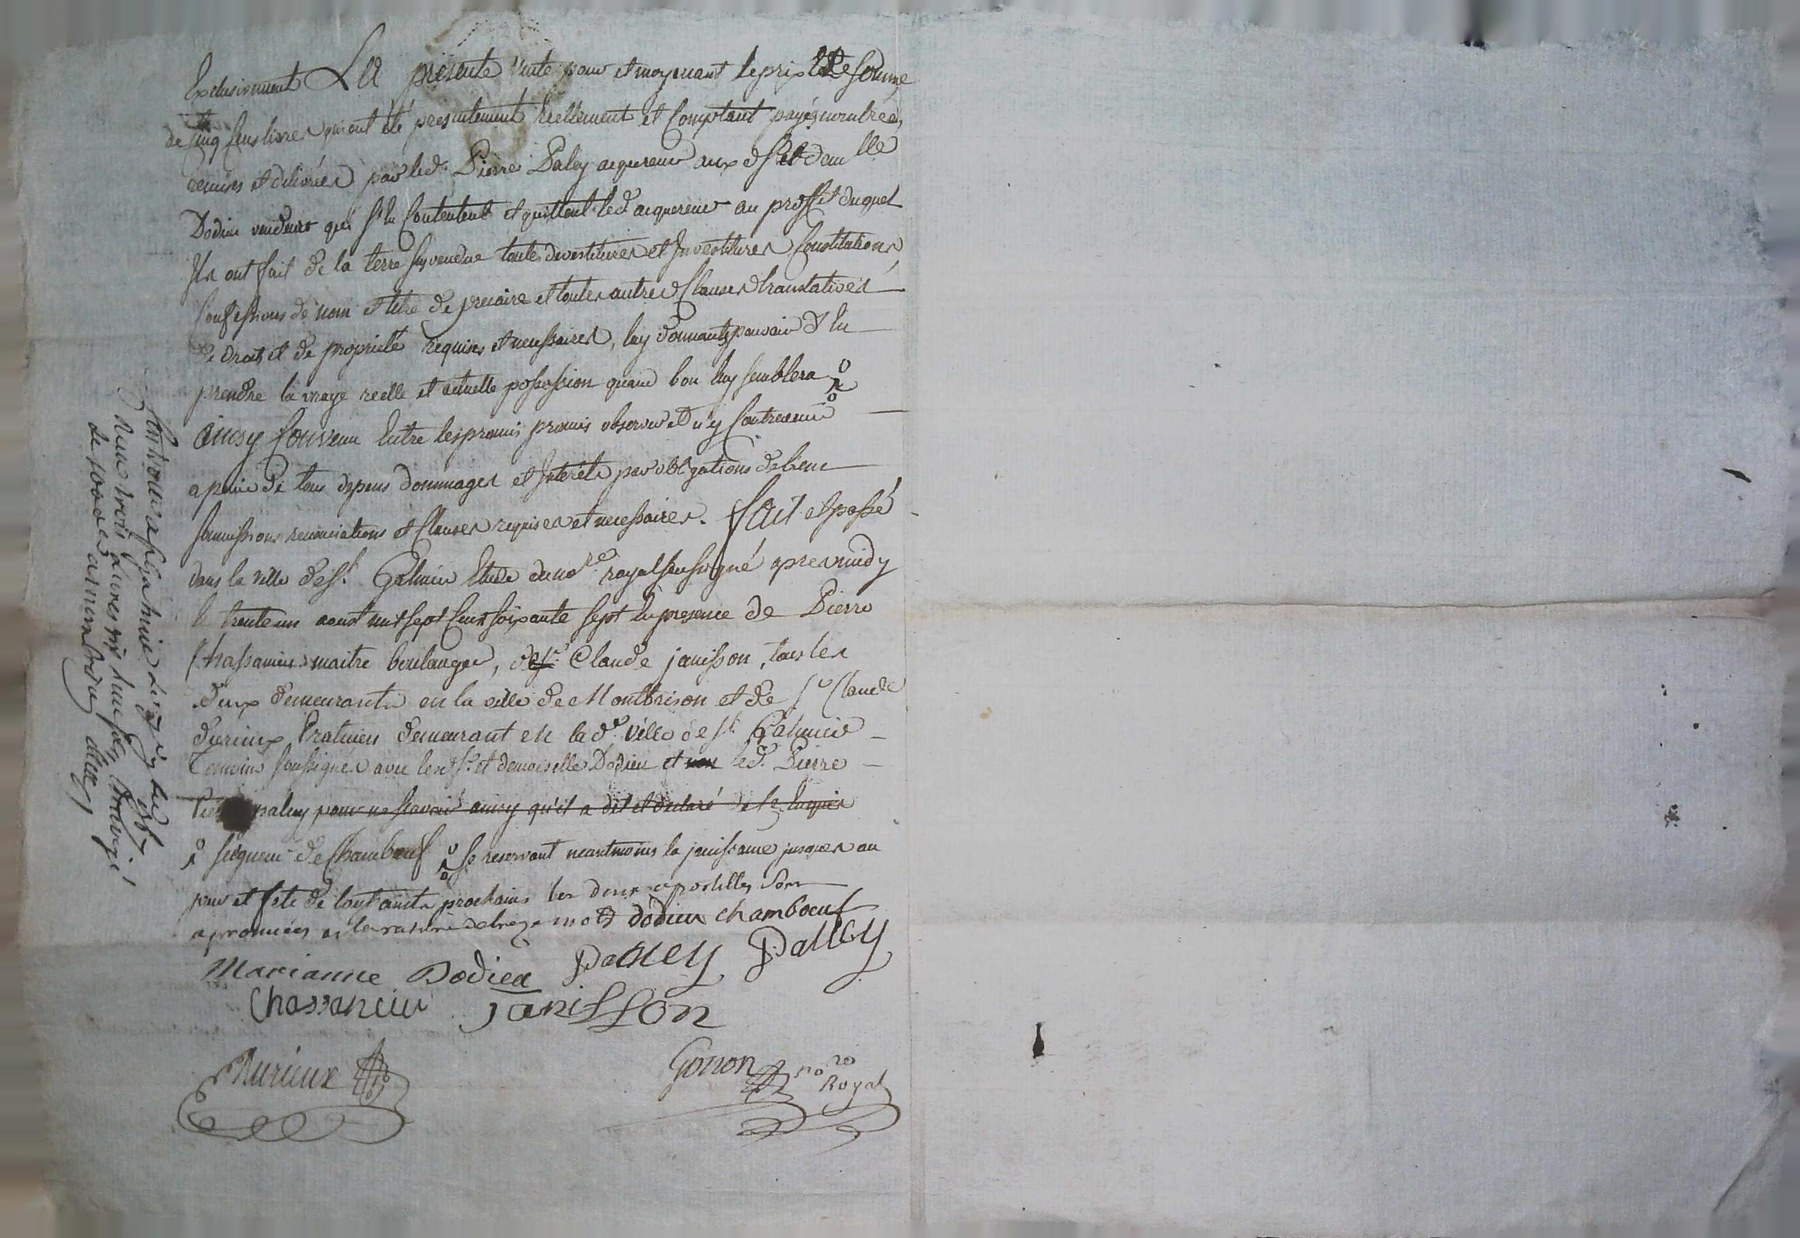 Exclusivement La présente vente pour et moyenant le prix et somme
de cinq cens livres qui ont été presentement réellement et comptant payés nombrées
remises et délivrées par led. Pierre Paley aquereur aux d. sr. et dem.lle
Dodieu vendeurs qui s'en contentent et quittent led. aquereur au proffit duquel
Ils ont fait de la terre susvendue toutes devestitures et Investitures Constitutions
Confessions de nom et titre de precaire et toutes autres Clauses translatives
de droits et de proprieté requises et necessaires, luy donnants pouvoir d'en
prendre la vraye réelle et actuelle possession quand bon luy semblera
ainsy convenu Entre les promis observer et n'y Contrevenir
a peine de tous depens dommages et Interets par obligations de biens
soumissions renonciations et Clauses requises et necessaires. fait et passé
dans la ville de St. Galmier Etude du no.re royal soussigné apres midy
le trente un aoust mil sept Cent soixante sept En presence de Pierre
Chassanieu maitre boulanger, de Sr. Claude janisson, tous les
deux demeurants en la ville de Montbrison et de Sr. Claude
durieux Praticien demeurant en lad. ville de St. Galmier
Temoins soussignés avec lesd. Sr. et demoiselle Dodieu et non led. Pierre
paley pour ne sçavoir ainsy qu'il a dit et declaré de ce Enquis
seigneur de Chambœuf se reservant neantmoins la jouissance jusques au
jour et fete de toussaints prochains les deux apostilles sont
aprouvées et la rature de treze mots dodieu chambœuf
Marianne Dodieu Palley Palley
Chassanieu janisson
Durieux
Gonon no.re
Royal
Controllé a St. Galmier le